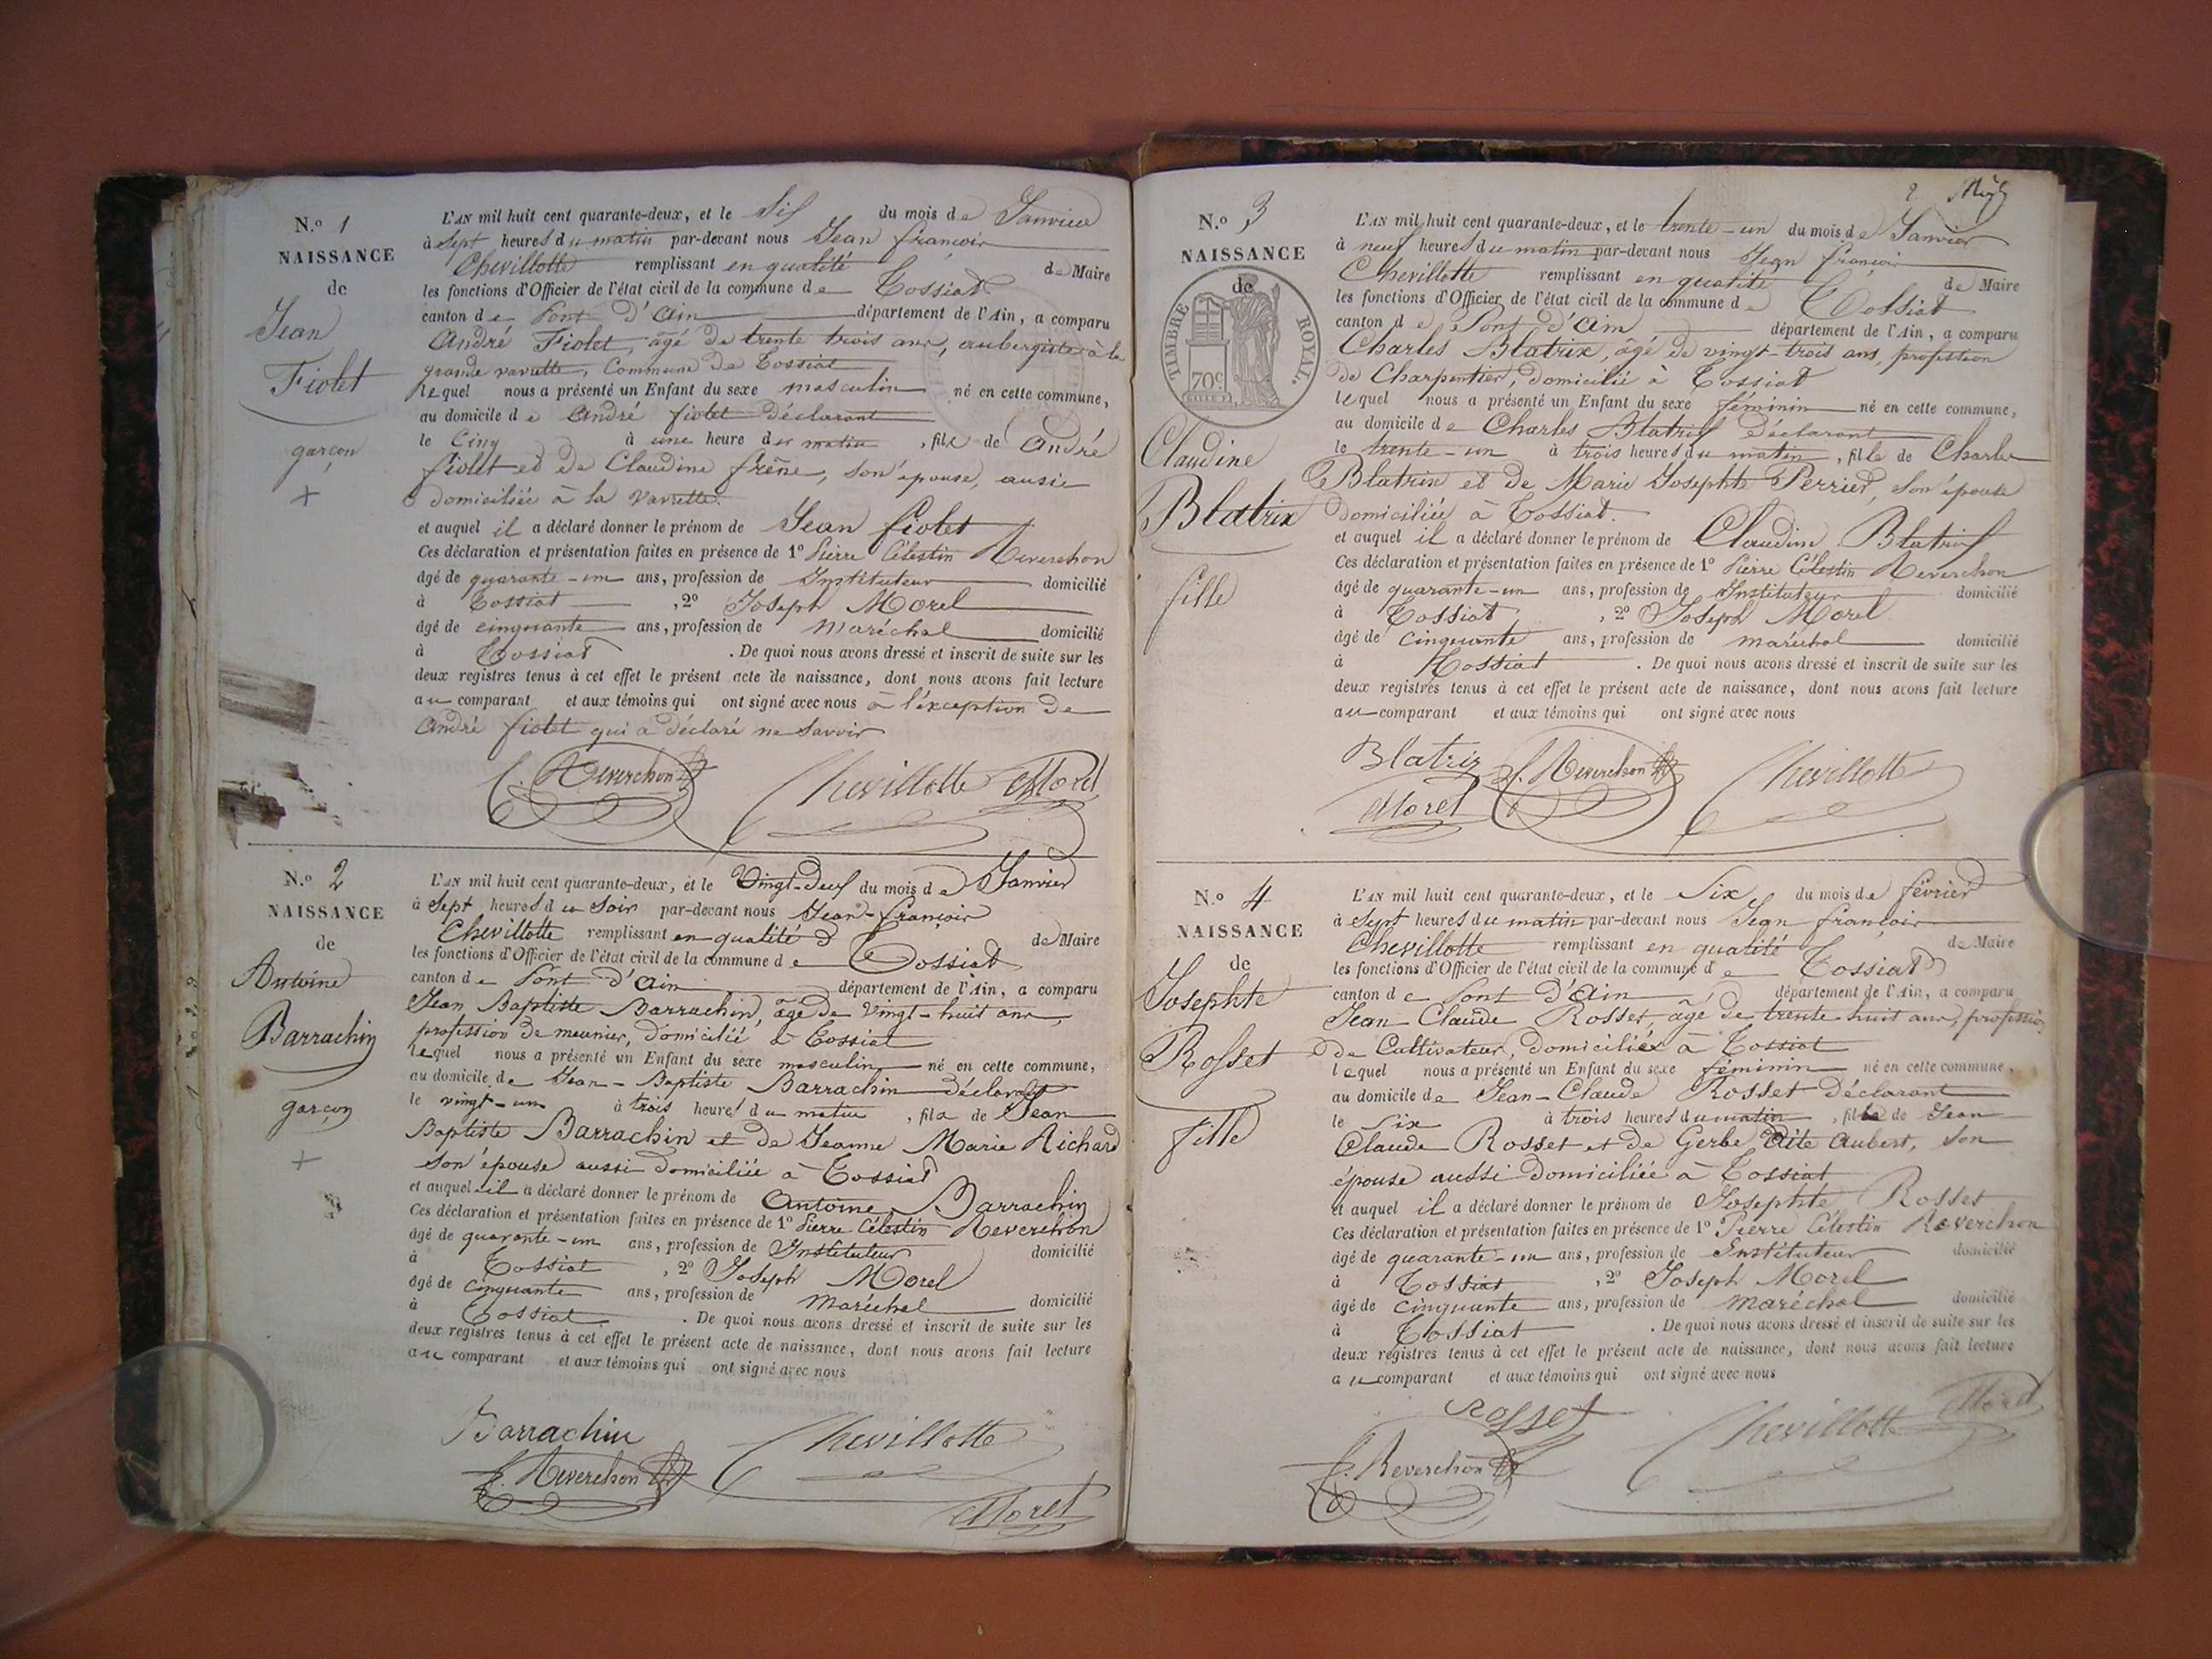 N.º 1
NAISSANCE
de
Jean
Fiolet
garçon
+
L'AN mil huit cent quarante-deux, et le Six du mois de Janvier
à Sept heures du matin par-devant nous Jean françois
Chevillotte remplissant en qualité de Maire
les fonctions d'Officier de l'état civil de la commune de Tossiat
canton de Pont d'Ain département de l'Ain, a comparu
André Fiolet, âgé de trente trois ans, aubergiste à la
grande vavrette, Commune de Tossiat
lequel nous a présenté un Enfant du sexe masculin né en cette commune,
au domicile de André fiolet déclarant
le Cinq à une heure du matin, fils de André
fiolet et de Claudine frêne, son épouse, aussi
domiciliée à la Vavrette.
et auquel il a déclaré donner le prénom de Jean fiolet
Ces déclaration et présentation faites en présence de 1º Pierre Célestin Reverchon
âgé de quarante-un ans, profession de Instituteur domicilié
à Tossiat, 2º Joseph Morel
âgé de cinquante ans, profession de maréchal domicilié
à Tossiat. De quoi nous avons dressé et inscrit de suite sur les
deux registres tenus à cet effet le présent acte de naissance, dont nous avons fait lecture
au comparant et aux témoins qui ont signé avec nous à l'exception de
André fiolet qui a déclaré ne savoir
Reverchon Chevillotte Morel
N.º 2
NAISSANCE
de
Antoine
Barrachin
garçon
+
L'AN mil huit cent quarante-deux, et le Vingt-deux du mois de Janvier
à Sept heures du Soir par-devant nous Jean-françois
Chevillotte remplissant en qualité de Maire
les fonctions d'Officier de l'état civil de la commune de Tossiat
canton de Pont d'Ain département de l'Ain, a comparu
Jean Baptiste Barrachin, âgé de vingt-huit ans,
profession de meunier, domicilié à Tossiat
lequel nous a présenté un Enfant du sexe masculin né en cette commune,
au domicile de Jean-Baptiste Barrachin déclarant
le vingt-un à trois heures du matin, fils de Jean
Baptiste Barrachin et de Jeanne Marie Richard
son épouse aussi domiciliée à Tossiat
et auquel il a déclaré donner le prénom de Antoine Barrachin
Ces déclaration et présentation faites en présence de 1º Pierre Célestin Reverchon
âgé de quarante-un ans, profession de Instituteur domicilié
à Tossiat, 2º Joseph Morel
âgé de cinquante ans, profession de maréchal domicilié
à Tossiat. De quoi nous avons dressé et inscrit de suite sur les
deux registres tenus à cet effet le présent acte de naissance, dont nous avons fait lecture
au comparant et aux témoins qui ont signé avec nous
Barrachin Chevillotte
Reverchon Morel
2
N.º 3
NAISSANCE
de
TIMBRE ROYAL
70c
Claudine
Blatrix
fille
L'AN mil huit cent quarante-deux, et le trente-un du mois de Janvier
à neuf heures du matin par-devant nous Jean françois
Chevillotte remplissant en qualité de Maire
les fonctions d'Officier de l'état civil de la commune de Tossiat
canton de Pont d'Ain département de l'Ain, a comparu
Charles Blatrix, âgé de vingt-trois ans, profession
de Charpentier, domicilié à Tossiat
lequel nous a présenté un Enfant du sexe féminin né en cette commune,
au domicile de Charles Blatrix déclarant
le trente-un à trois heures du matin, fille de Charles
Blatrix et de Marie Josephte Perrier, son épouse
domiciliée à Tossiat.
et auquel il a déclaré donner le prénom de Claudine Blatrix
Ces déclaration et présentation faites en présence de 1º Pierre Célestin Reverchon
âgé de quarante-un ans, profession de Instituteur domicilié
à Tossiat, 2º Joseph Morel
âgé de cinquante ans, profession de maréchal domicilié
à Tossiat. De quoi nous avons dressé et inscrit de suite sur les
deux registres tenus à cet effet le présent acte de naissance, dont nous avons fait lecture
au comparant et aux témoins qui ont signé avec nous
Blatrix Reverchon Chevillotte
Morel
N.º 4
NAISSANCE
de
Josephte
Rosset
fille
L'AN mil huit cent quarante-deux, et le Six du mois de février
à Sept heures du matin par-devant nous Jean françois
Chevillotte remplissant en qualité de Maire
les fonctions d'Officier de l'état civil de la commune de Tossiat
canton de Pont d'Ain département de l'Ain, a comparu
Jean-Claude Rosset, âgé de trente huit ans, profession
de Cultivateur, domicilié à Tossiat
lequel nous a présenté un Enfant du sexe féminin né en cette commune,
au domicile de Jean-Claude Rosset déclarant
le Six à trois heures du matin, fille de Jean
Claude Rosset et de Gerbe dite Aubert, son
épouse aussi domiciliée à Tossiat
et auquel il a déclaré donner le prénom de Josephte Rosset
Ces déclaration et présentation faites en présence de 1º Pierre Célestin Reverchon
âgé de quarante-un ans, profession de Instituteur domicilié
à Tossiat, 2º Joseph Morel
âgé de cinquante ans, profession de maréchal domicilié
à Tossiat. De quoi nous avons dressé et inscrit de suite sur les
deux registres tenus à cet effet le présent acte de naissance, dont nous avons fait lecture
au comparant et aux témoins qui ont signé avec nous
Rosset Chevillotte Morel
Reverchon